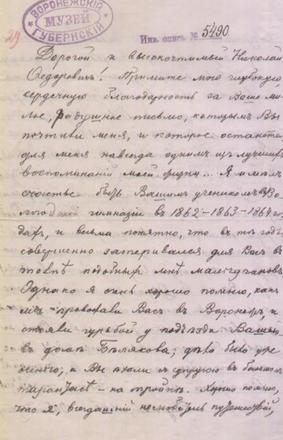 ВОРОНЕЖСКИЙ
МУЗЕЙ
ГУБЕРНСКІЙ
29
Инв. опись № 5490.
Дорогой и высокочтимый Николай
Федорович! Примите мою глубокую,
сердечную благодарность за Ваше ми-
лое, радушное письмо, которым Вы
почтили меня, и которое останется
для меня навсегда одним из лучших
воспоминаний моей жизни... Я имел
счастье быть Вашим учеником въ Во-
гимназіи въ 1862–1863–1864 го-
дахъ, и весьма понятно, что въ
совершенно затерялся для Васъ въ
толпѣ подобныхъ мнѣ мальчугановъ
Однако я очень хорошо помню, какъ
мы провожали Васъ въ Воронежъ, и
стояли гурьбой у подъѣзда Вашего
въ домѣ Бѣлякова; дѣло было
а Вы ѣхали съ супругой въ большомъ
тарантасѣ – на тройкѣ. Хорошо помню,
что я,